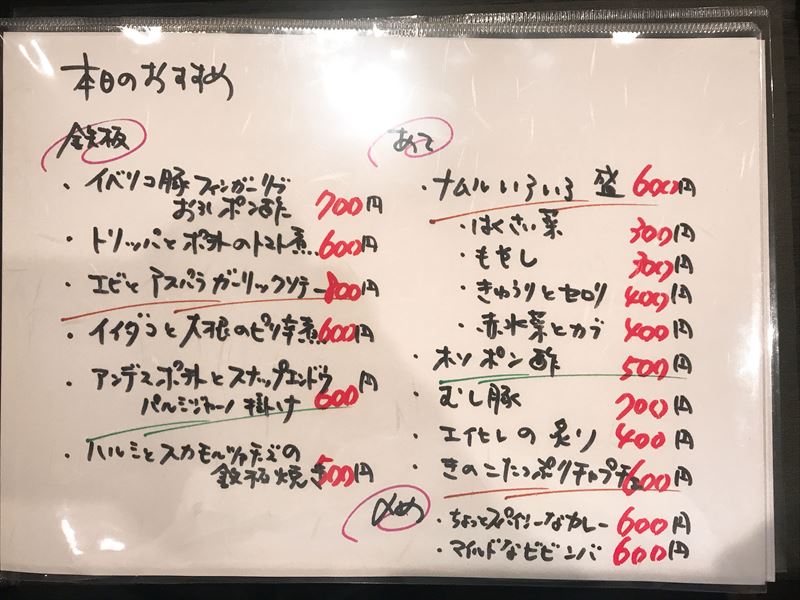 本日のおすすめ
鉄板
・イベリコ豚フィンガーリブ
おろしポン酢 700円
・トリッパとポテトのトマト煮 600円
・エビとアスパラガーリックソテー 800円
・イイダコと大根のピリ辛煮 600円
・アンデスポテトとスナップエンドウ
パルミジャーノ掛け 600円
・ハルミとスカモルツァチーズの
鉄板焼き 500円
あて
・ナムルいろいろ 盛 600円
・はくさい菜 300円
・もやし 300円
・きゅうりとセロリ 400円
・赤水菜とカブ 400円
・ホソポン酢 500円
・むし豚 700円
・エイヒレの炙り 400円
・きのこたっぷりチャプチェ 600円
〆め
・ちょっとスパイシーなカレー 600円
・マイルドなビビンバ 600円